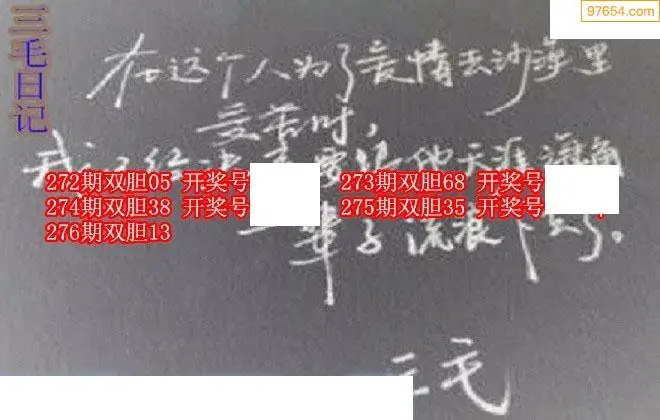 97654.com
三毛日记
在这个人为了爱情去沙漠里
受苦时,
我 已经决 要 他天涯海角
272期双胆05 开奖号
273期双胆68 开奖号
274期双胆38 开奖号
275期双胆35 开奖号
276期双胆13
一辈子流浪下去了。
三毛